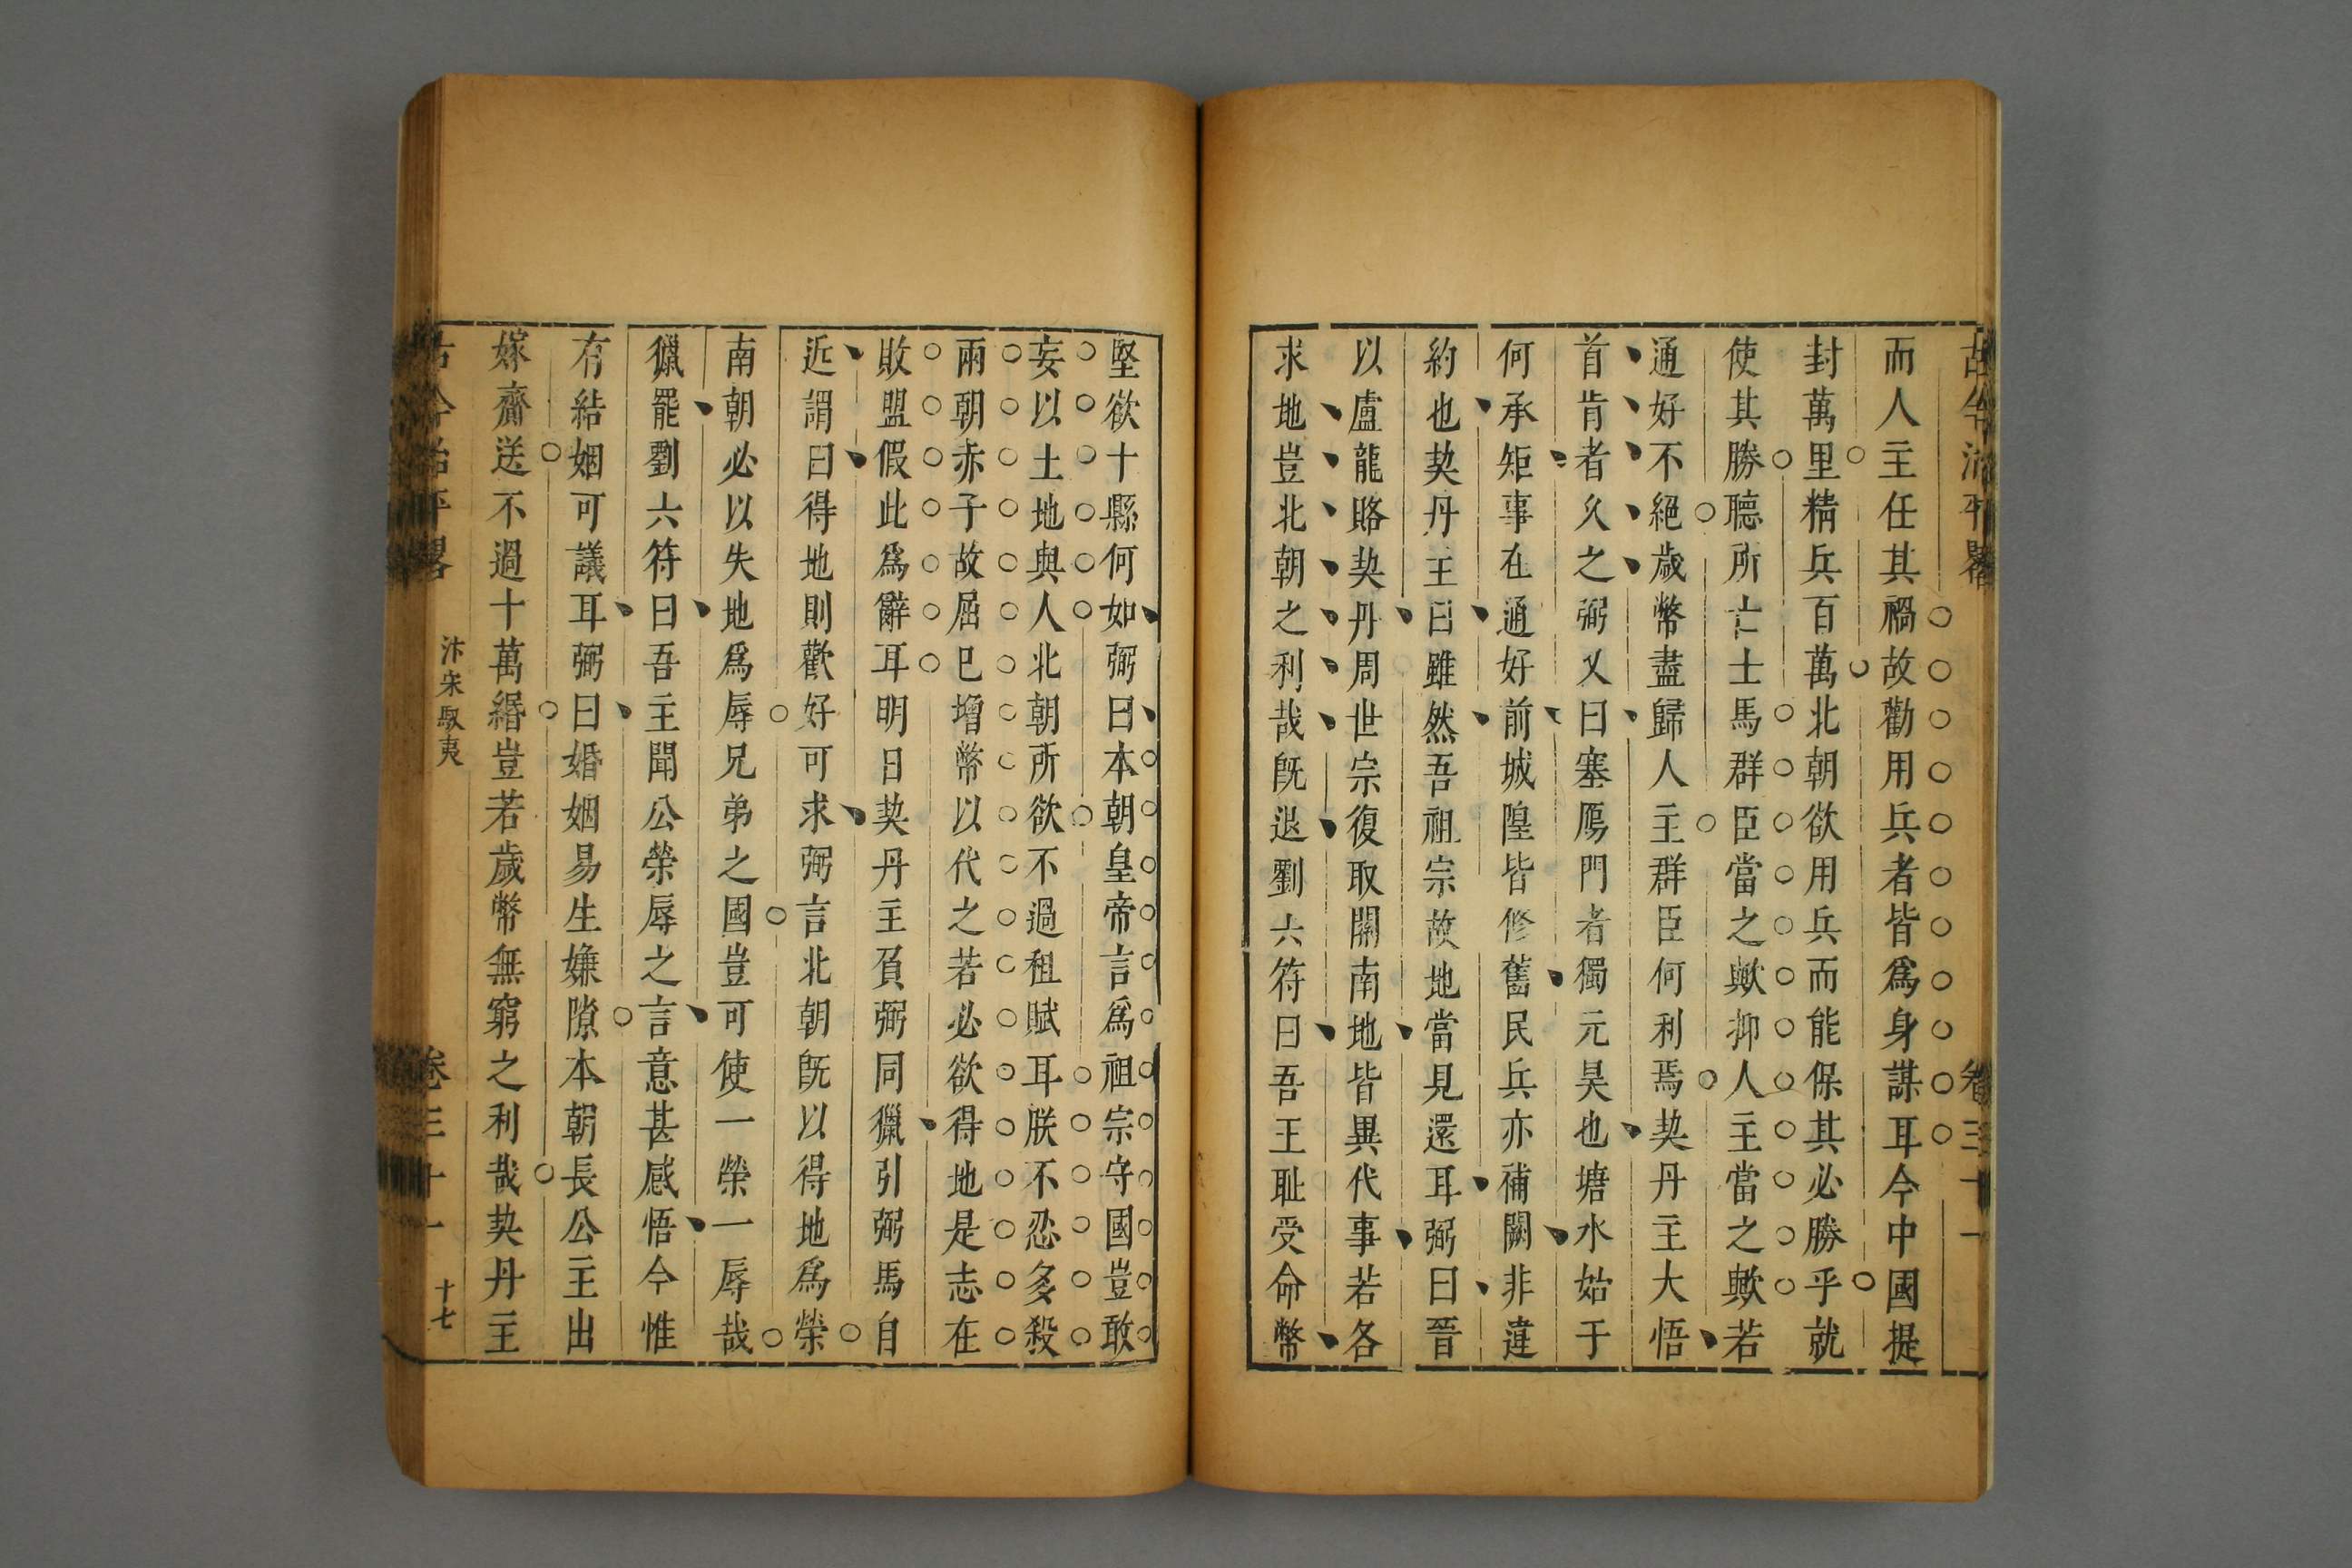 古今治平畧 卷三十一
而人主任其禍故勸用兵者皆爲身謀耳今中國提
封萬里精兵百萬北朝欲用兵而能保其必勝乎就
使其勝聽所亡士馬群臣當之歟抑人主當之歟若
通好不絕歲幣盡歸人主群臣何利焉契丹主大悟
首肯者久之弼乂曰塞鴈門者獨元昊也塘水始于
何承矩事在通好前城隍皆修舊民兵亦補闕非違
約也契丹主曰雖然吾祖宗故地當見還耳弼曰晉
以盧龍賂契丹周世宗復取關南地皆異代事若各
求地豈北朝之利哉旣退劉六符曰吾王耻受命幣
堅欲十縣何如弼曰本朝皇帝言爲祖宗守國豈敢
妄以土地與人北朝所欲不過租賦耳朕不忍多殺
兩朝赤子故屈已增幣以代之若必欲得地是志在
敗盟假此爲辭耳明日契丹主頁弼同獵引弼馬自
近謂曰得地則歡好可求弼言北朝旣以得地爲榮
南朝必以失地爲辱兄弟之國豈可使一榮一辱哉
獵罷劉六符曰吾主聞公榮辱之言意甚感悟今惟
有結姻可議耳弼曰婚姻易生嫌隙本朝長公主出
嫁齎送不過十萬緡豈若歲幣無窮之利哉契丹主
古今治平畧 汴宋馭夷 卷三十一 十七